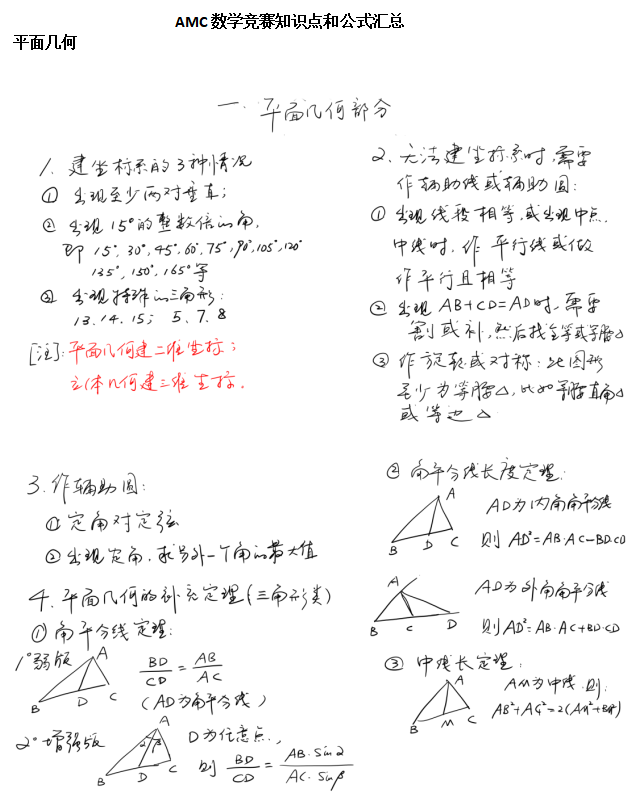 AMC 数学竞赛知识点和公式汇总
平面几何
一. 平面几何部分
1. 建坐标系的3种情况
① 出现至少两对垂直;
② 出现15°的整数倍的角,
即 15°, 30°, 45°, 60°, 75°, 90°, 105°, 120°
135°, 150°, 165° 等
③ 出现特殊的三角形:
13.14.15; 5、7、8
[注]: 平面几何建二维坐标;
立体几何建三维坐标.
2. 无法建坐标系时,需要
作辅助线或辅助圆:
① 出现线段相等,或出现中点.
中线时. 作平行线或做
作平行且相等
② 出现 AB+CD=AD时,需要
割或补,然后找全等或等腰△
③ 作旋转或对称: 此图形
至少为等腰△,比如等腰直角△
或等边△
3. 作辅助圆:
① 定角对定弦
② 出现定角,求另外一个角的最大值
4. 平面几何的补充定理(三角形类)
① 角平分线定理:
1° 弱版
A
B
D
C
BD/CD = AB/AC
(AD为角平分线)
2° 增强版
A
α
β
B
D
C
D为任意点,
则 BD/CD = AB·sinα/AC·sinβ
② 角平分线长度定理:
A
B
D
C
AD为内角角平分线
则 AD²=AB·AC−BD·CD
A
B
C
D
AD为外角角平分线
则 AD²=AB·AC+BD·CD
③ 中线长定理:
A
B
M
C
AM为中线.则:
AB²+AC²=2(AM²+BM²)